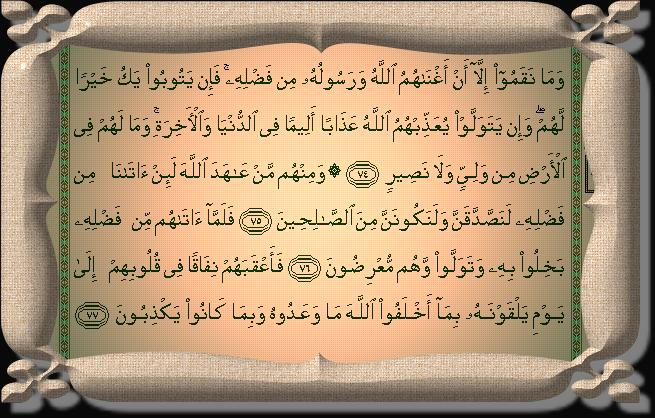 وَمَا نَقَمُوٓا۟ إِلَّآ أَنْ أَغْنَىٰهُمُ ٱللَّهُ وَرَسُولُهُۥ مِن فَضْلِهِۦ ۚ فَإِن يَتُوبُوا۟ يَكُ خَيْرًا
لَّهُمْ ۖ وَإِن يَتَوَلَّوْا۟ يُعَذِّبْهُمُ ٱللَّهُ عَذَابًا أَلِيمًا فِى ٱلدُّنْيَا وَٱلْأَخِرَةِ ۚ وَمَا لَهُمْ فِى
ٱلْأَرْضِ مِن وَلِىٍّ وَلَا نَصِيرٍ ٧٤ ۞ وَمِنْهُم مَّنْ عَـٰهَدَ ٱللَّهَ لَئِنْ ءَاتَىٰنَا مِن
فَضْلِهِۦ لَنَصَّدَّقَنَّ وَلَنَكُونَنَّ مِنَ ٱلصَّـٰلِحِينَ ٧٥ فَلَمَّآ ءَاتَىٰهُم مِّن فَضْلِهِۦ
بَخِلُوا۟ بِهِۦ وَتَوَلَّوا۟ وَّهُم مُّعْرِضُونَ ٧٦ فَأَعْقَبَهُمْ نِفَاقًا فِى قُلُوبِهِمْ إِلَىٰ
يَوْمِ يَلْقَوْنَهُۥ بِمَآ أَخْلَفُوا۟ ٱللَّهَ مَا وَعَدُوهُ وَبِمَا كَانُوا۟ يَكْذِبُونَ ٧٧